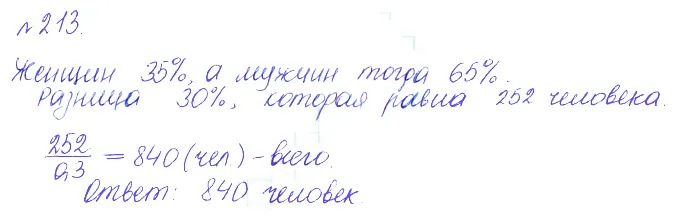 №213.
Женщин 35%, а мужчин тогда 65%.
Разница 30%, которая равна 252 человека.
252/0,3 = 840 (чел) - всего.
Ответ: 840 человек